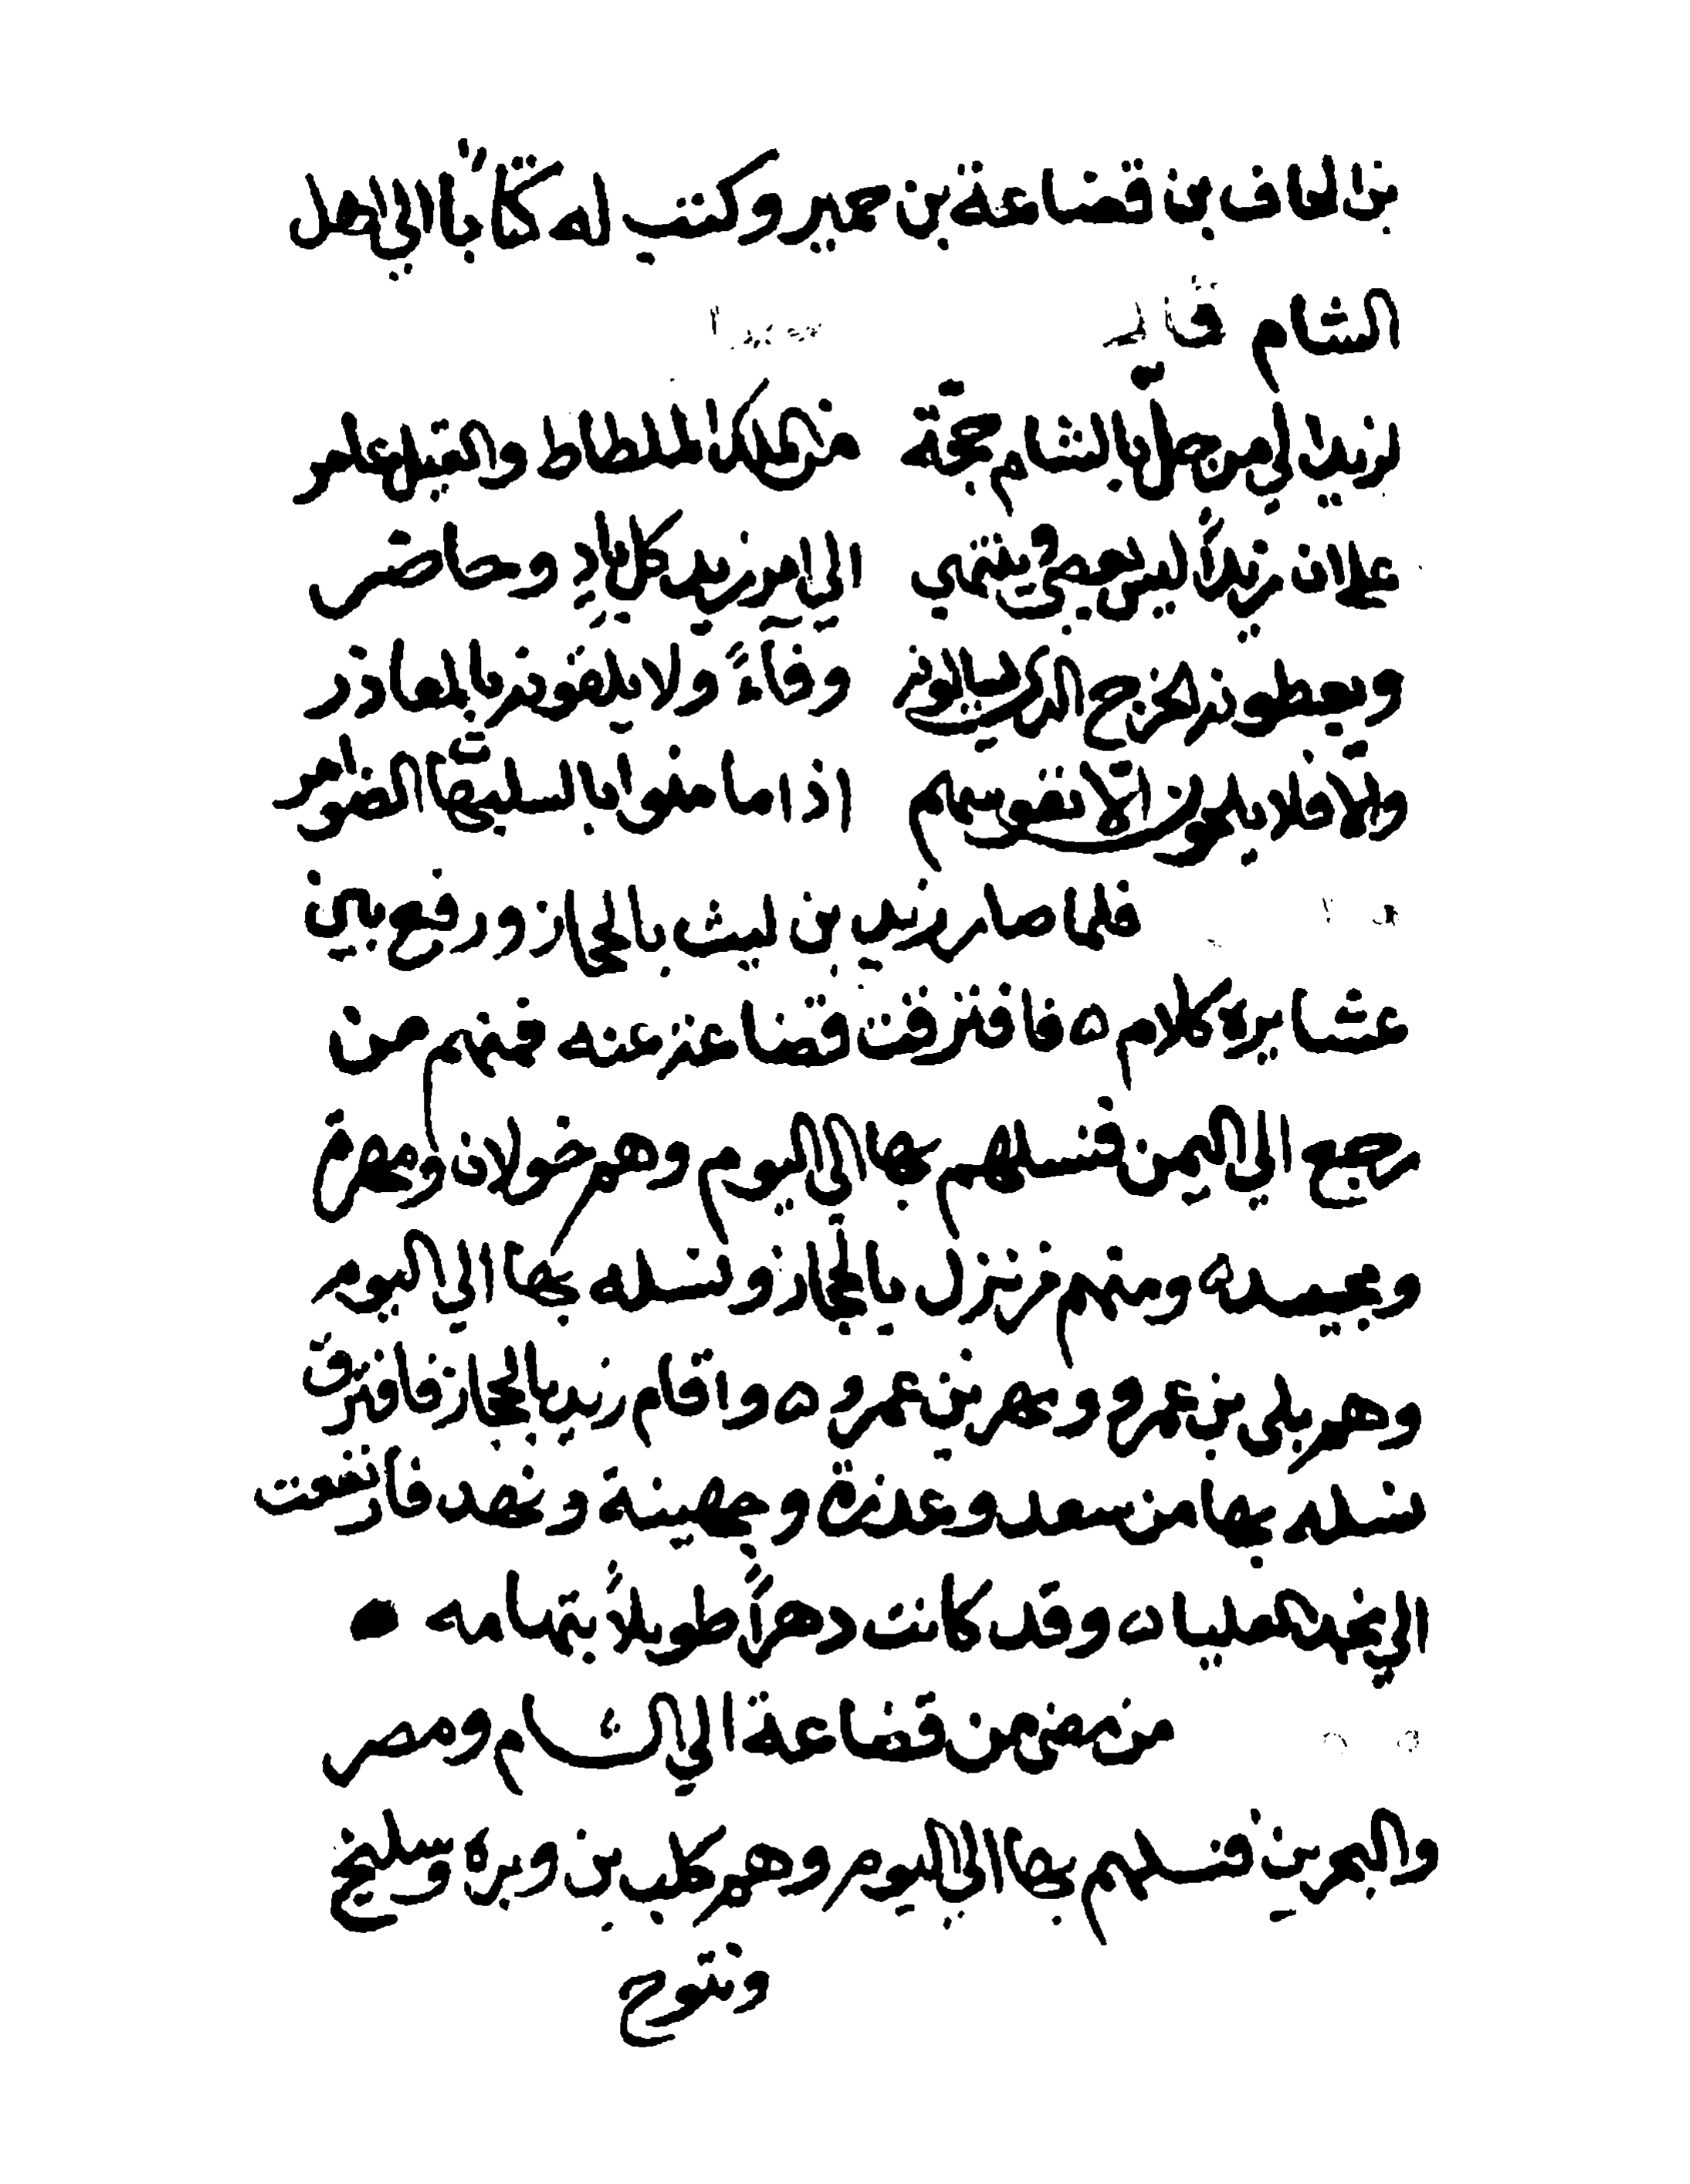 بن الحاف بن قضاعة بن حمير وكتب له كتاباً الى اهل
الشام
لزيد الى من حل بالشام حجة من الملك الملطاط والقيل عامر
على ان زيداً ليس يعصى وينتمي الى امر زيد كل باد وحاضر
ويعطون الخرج الذي وفآءً ولا يلقونه بالمعاذر
والا فلا يلحون الا نفوسهم اذا ما منوا بالسلهبات الضوامر
فلما صار زيد بن ليث بالحجاز ورفع بين
عشايره كلام ٥ فافترقت قضاعة عنه فمنهم من
رجع الي اليمن فنسلهم بها الى اليوم وهم خولان ومهرة
ومجيد ٥ ومنهم من نزل بالحجاز ونسله بها الى اليوم
وهم بلى بن عمرو وبهر بن عمرو ٥ واقام زيد بالحجاز فافترق
نسله بها من سعد وعذرة وجهينة ونهد فارتفعت
الي نجد العليا ٥ وقد كانت دهراً طويلاً بتهامه
من مضى من قضاعة الي الشام ومصر
والبحرين فنسلهم بها الى اليوم وهم كلب بن وبره وسليح
وتنوخ